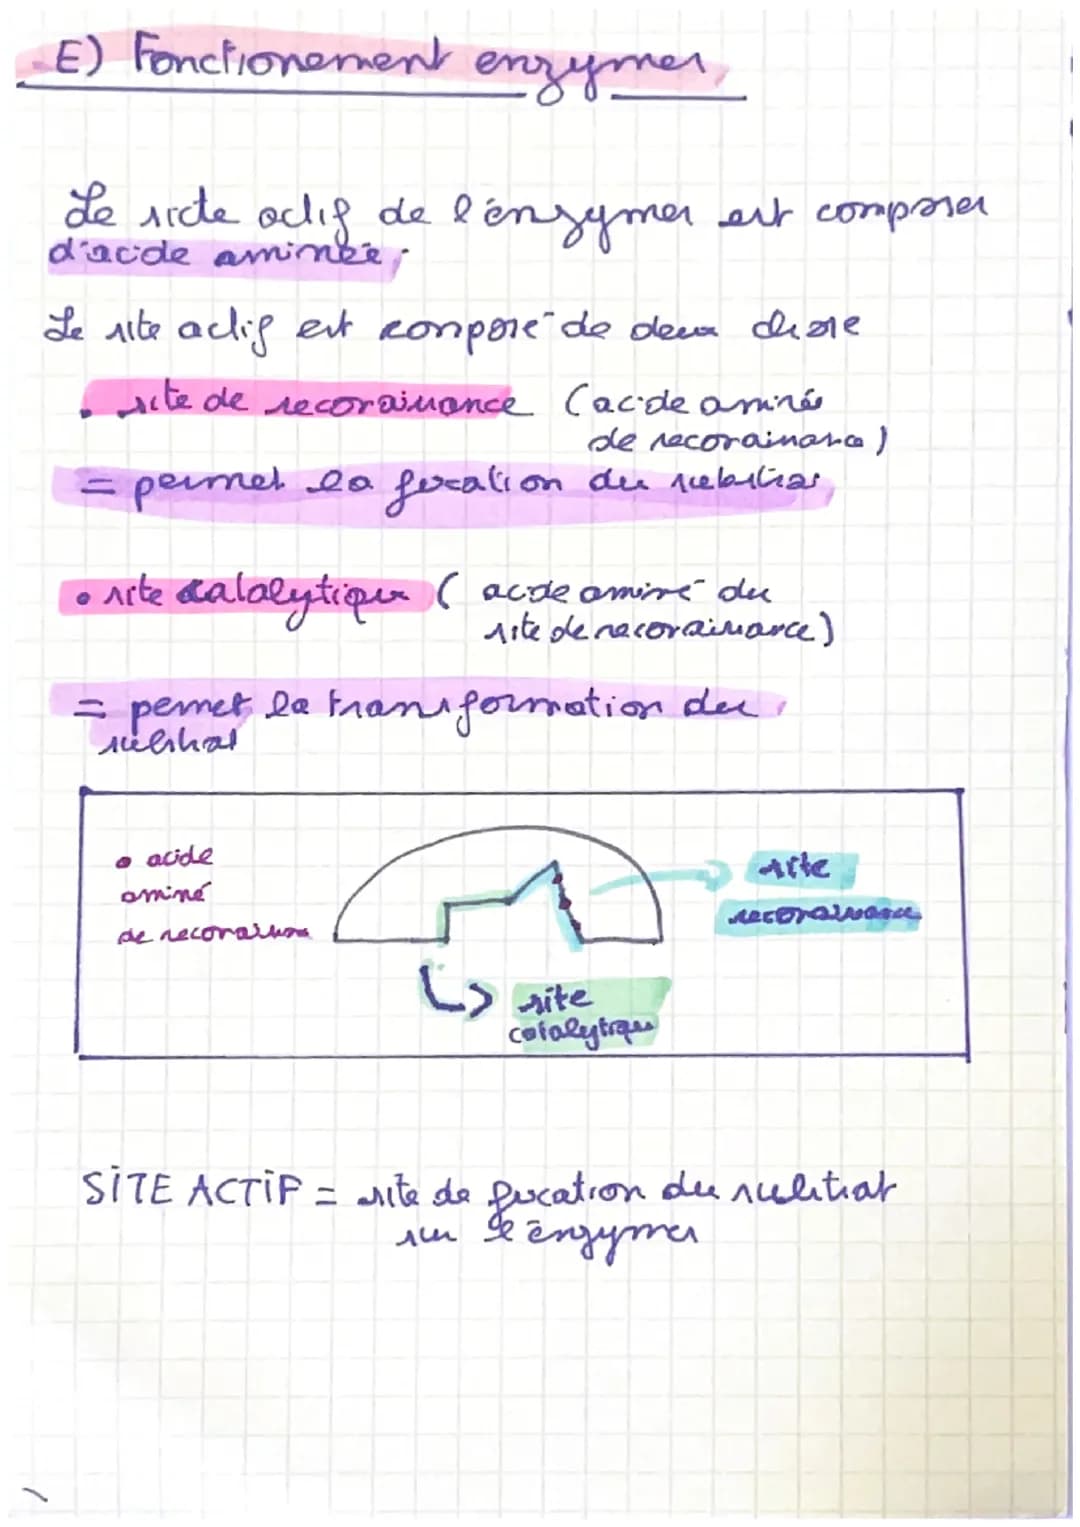 E) Fonctionement enzymes
Le sicte actif de l'enzymes est composer
d'acide aminée.
Le site actif est composé de deux chose
• site de reconaissance (acide aminés
de reconaissance)
= permet la fixation du substras
• site catalytiques (acide aminé du
site de reconaissance)
= permet la transformation du
substrat
• acide
aminé
de reconaissance
site
reconaissance
site
catalytiques
SITE ACTIF = site de fixation du substrat
sur l'enzymes